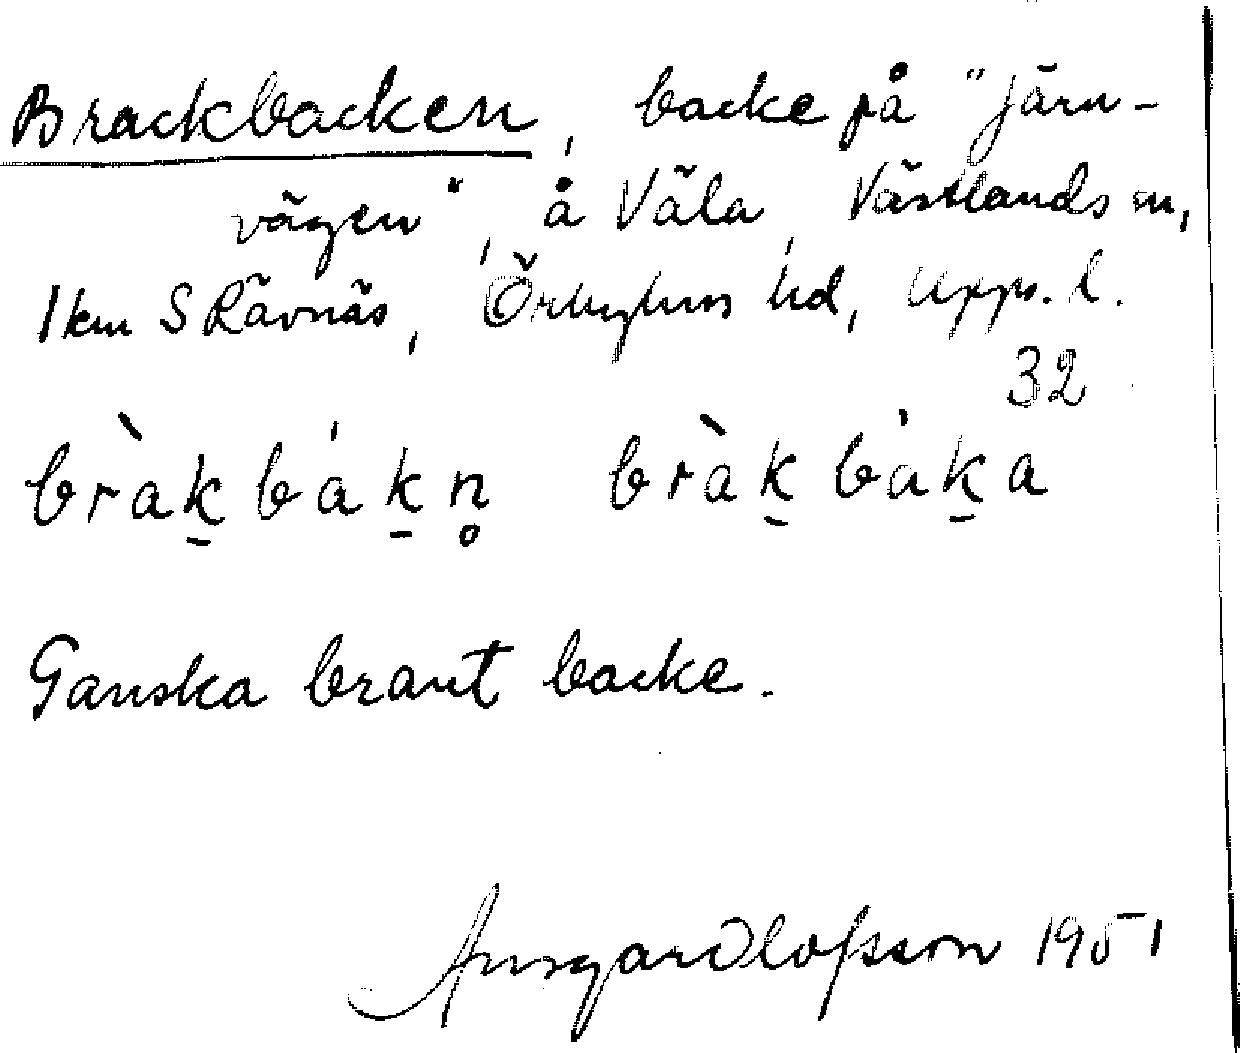 Brackbacken, backe på "Järn-
vägen", å Väla, Västlands sn,
1 km S Rävnäs, Örbyhus hd, Upps. l.
32
bràk̠ bák̠n̥ bràk̠ bàk̠a
Ganska brant backe.
Ansgar Olofsson 1951